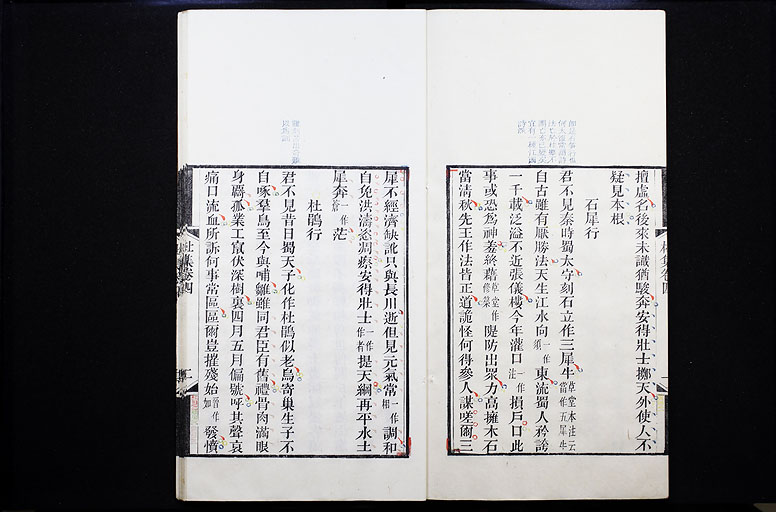 擅虛名後來未識猶駿奔安得壯士擲天外使人不
疑見本根
石犀行
君不見秦時蜀太守刻石立作三犀牛草堂本注云當作五犀牛
自古雖有厭勝法天生江水向一作須東流蜀人矜誇
一千載泛溢不近張儀樓今年灌口一作注損戶口此
事或恐為神羞終藉草堂作修築隄防出眾力高擁木石
當清秋先王作法皆正道詭怪何得參人謀嗟爾三
犀不經濟缺訛只與長川逝但見元氣常一作相調和
自免洪濤恣凋瘵安得壯士一作作者提天綱再平水土
犀奔一作蒼茫
杜鵑行
君不見昔日蜀天子化作杜鵑似老烏寄巢生子不
自啄羣鳥至今與哺雛雖同君臣有舊禮骨肉滿眼
身羇孤業工竄伏深樹裏四月五月偏號呼其聲哀
痛口流血所訴何事當區區爾豈摧殘始音作如發憤
杜集卷四